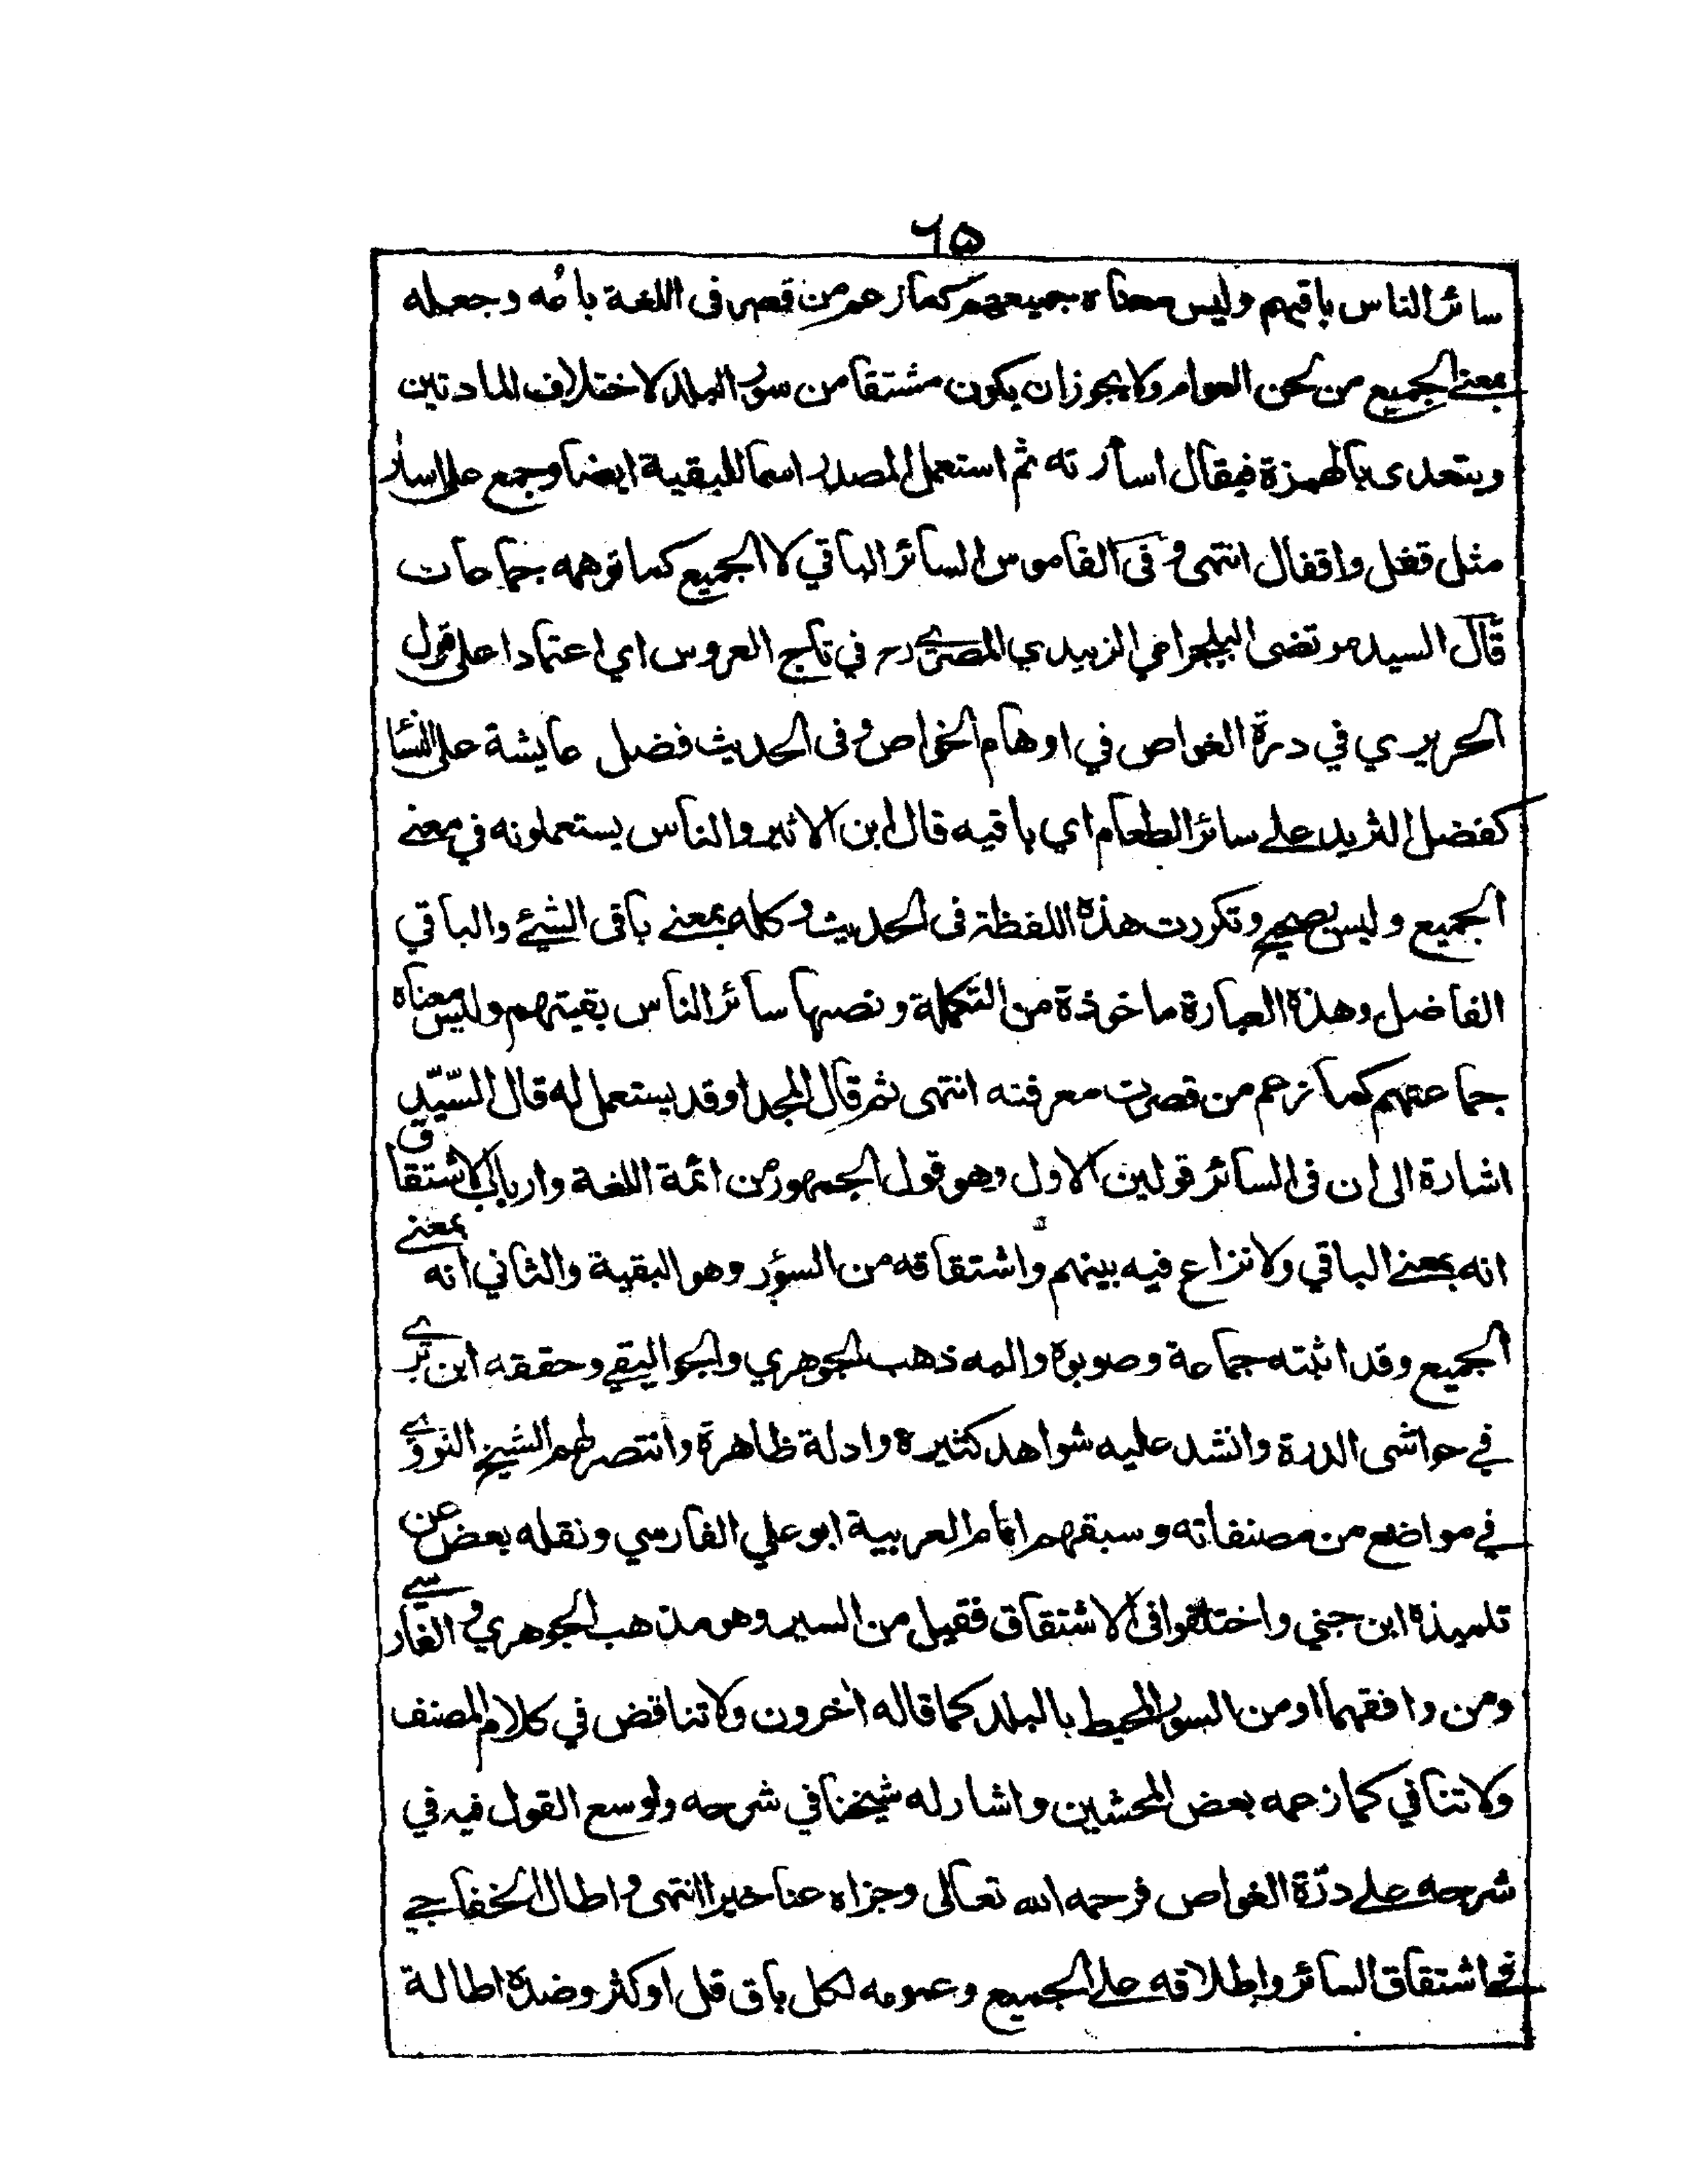 ٦٥
سائر الناس باقيهم وليس معناه جميعهم كما زعم من قصر فى اللغة باعه وجعله
بمعنے الجميع من لحن العوام ولا يجوز ان يكون مشتقا من سور البلد لاختلاف المادتين
ويتعدى بالهمزة فيقال اسأرته ثم استعمل المصدر اسما للبقية ايضا وجمع على اسار
مثل قفل واقفال انتهى وفى القاموس السائر الباقي لا الجميع كما توهمه جماعات
قال السيد مرتضى البلجرامي الزبيدي المصري رح في تاج العروس اي اعتمادا على قول
الحريري في درة الغواص في اوهام الخواص وفى الحديث فضل عايشة على النسا
كفضل الثريد علے سائر الطعام اي باقيه قال ابن الاثير والناس يستعملونه في معنے
الجميع وليس بصحيح وتكررت هذه اللفظة فى الحديث وكله بمعنے باقى الشيئ والباقي
الفاضل وهذه العبارة ماخوذة من التكملة ونصها سائر الناس بقيتهم وليس معناه
جماعتهم كما زعم من قصرت معرفته انتهى ثم قال المجد اوقد يستعمل له قال السّيّد
اشارة الى ان فى السائر قولين الاول وهو قول الجمهور من ائمة اللغة وارباب الاشتقاق
انه بمعنے الباقي ولا نزاع فيه بينهم واشتقاقه من السؤر وهو البقية والثاني انه بمعنے
الجميع وقد اثبته جماعة وصوبوه واليه ذهب الجوهري والجواليقي وحققه ابن برّے
في حواشى الدرة وانشد عليه شواهد كثيرة وادلة ظاهرة وانتصر لهم الشيخ النووے
في مواضع من مصنفاته وسبقهم امام العربية ابو علي الفارسي ونقله بعض عن
تلميذه ابن جني واختلفوا فى الاشتقاق فقيل من السير وهو مذهب الجوهري والفارسے
ومن وافقهما او من السور المحيط بالبلد كما قاله اخرون ولا تناقض في كلام المصنف
ولا تنافي كما زعمه بعض المحشين واشار له شيخنا في شرحه واوسع القول فيه في
شرحه علے درّة الغواص فرحمه الله تعالى وجزاه عنا خيرا انتهى واطال الخفاجے
في اشتقاق السائر واطلاقه على الجميع وعمومه لكل باق قل او كثر وضده اطالة